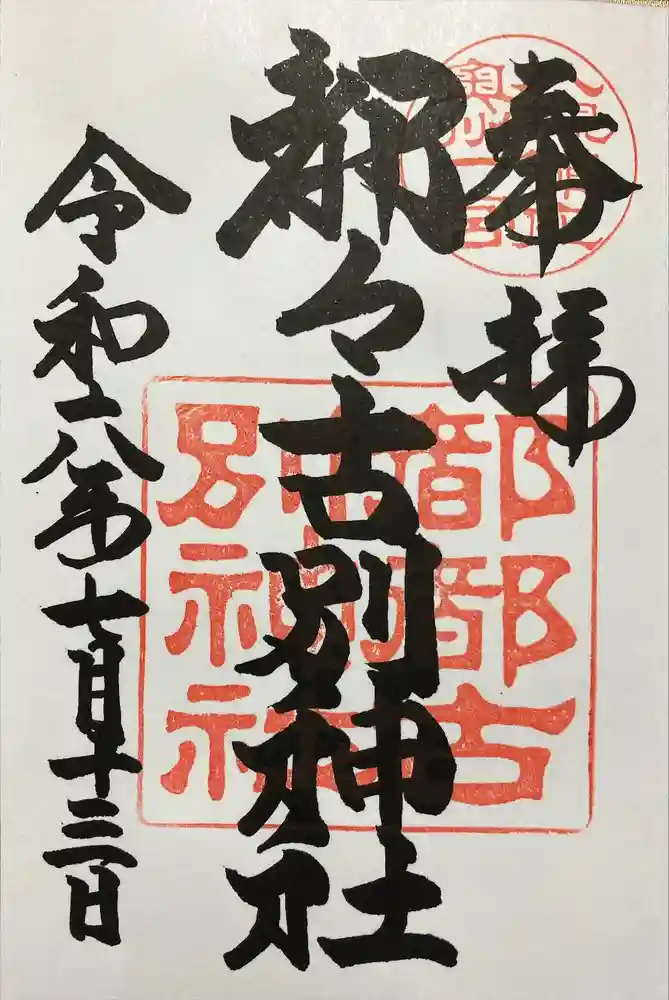 奉拝
都々古別神社
令和六年七月十三日
都都古
別神社